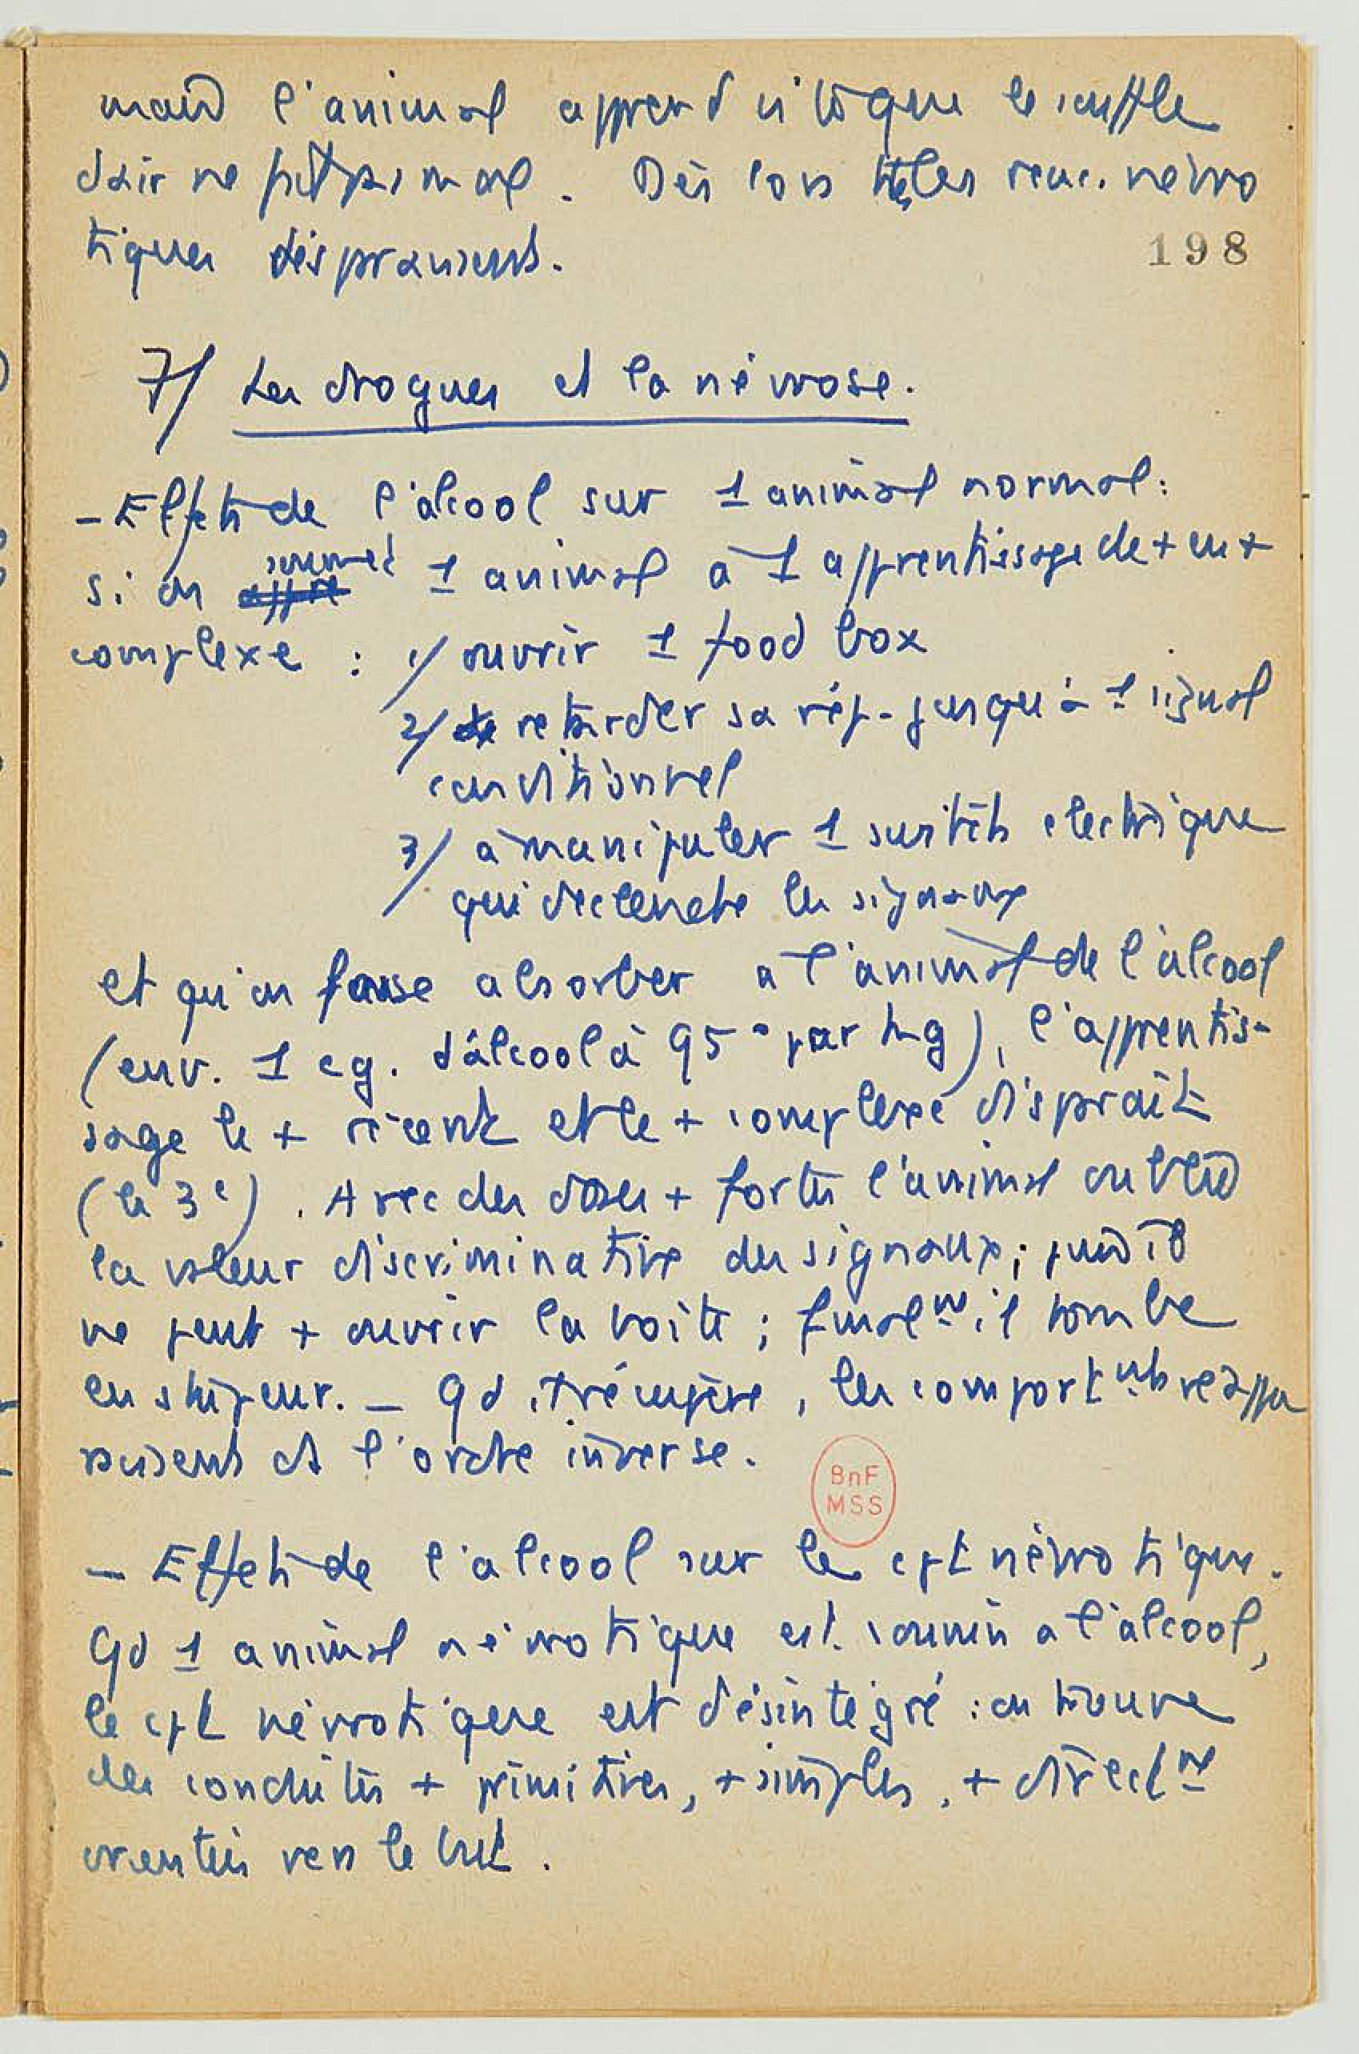 l'animal apprend vite que le souffle
d'air ne fait pas mal. Dès lors ttes les reac. névro
tiques disparaissent.
198
7/ Les drogues et la névrose.
- Effets de l'alcool sur 1 animal normal :
si on soumet 1 animal à 1 apprentissage de + en +
complexe : 1/ ouvrir 1 food box
2/ retarder sa rép. jusqu'à 1 signal
conditionnel
3/ à manipuler 1 switch electrique
qui declenche les signaux
et qu'on fasse absorber a l'animal de l'alcool
(env. 1 cg. d'alcool à 95° par kg), l'apprentis-
sage le + récent et le + complexe disparaît
(le 3e). Avec des doses + fortes l'animal oublie
la valeur discriminative des signaux ; puis il
ne peut + ouvrir la boite ; finalnt il tombe
en stupeur. _ Qd il récupère, les comportnts réappa
raissent ds l'ordre inverse.
BnF
MSS
- Effets de l'alcool sur le cpt névrotique.
Qd 1 animal névrotique est soumis a l'alcool,
le cpt névrotique est désintégré : on trouve
des conduites + primitives, + simples, + directnt
orientées vers le but.